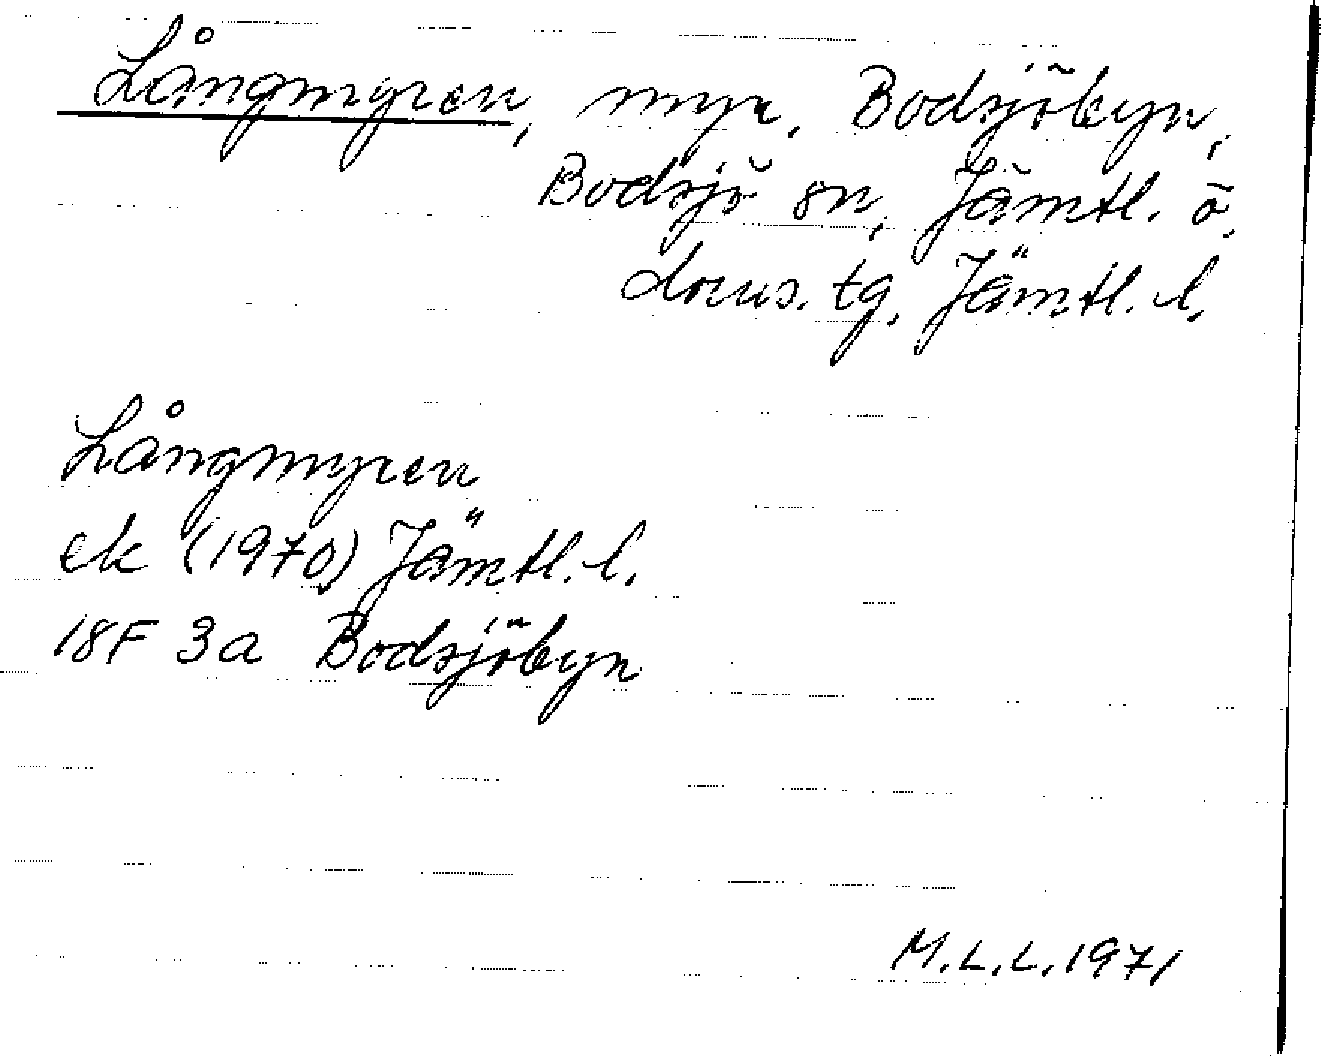 Långmyren, myr, Bodsjöbyn,
Bodsjö sn, Jämtl. ö.
doms. tg. Jämtl. l.
Långmyren
ek (1970) Jämtl. l.
18F 3a Bodsjöbyn
M.L.L. 1971